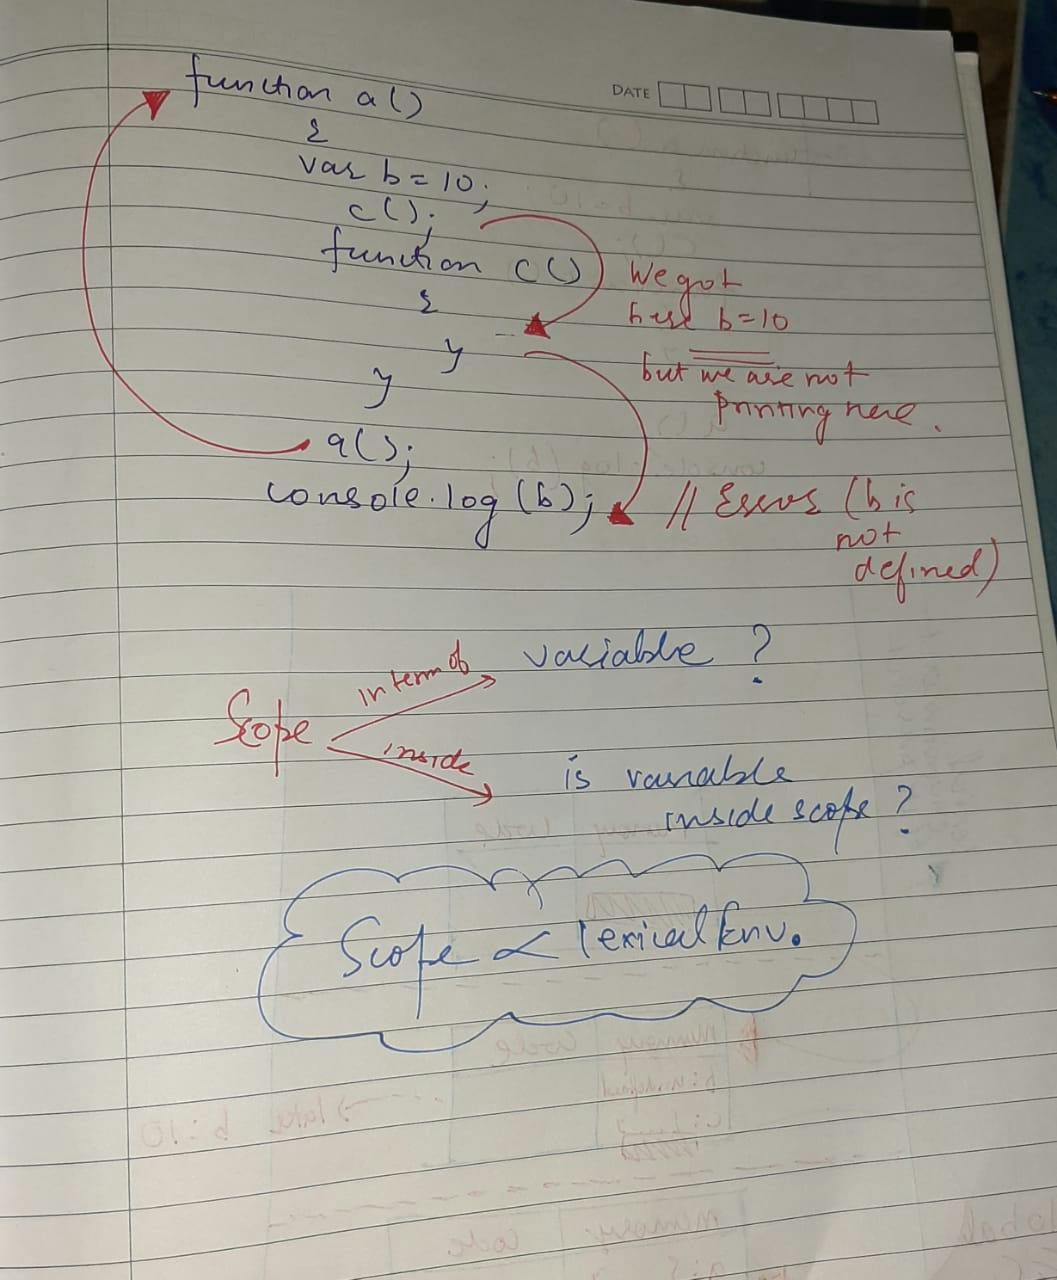 DATE
function a()
{
var b = 10;
c();
function c()
{
}
}
a();
console.log(b);
We got
here b=10
but we are not
printing here.
// Error (b is
not
defined)
Scope
in term of
variable ?
inside
is variable
inside scope ?
Scope ∝ lexical Env.